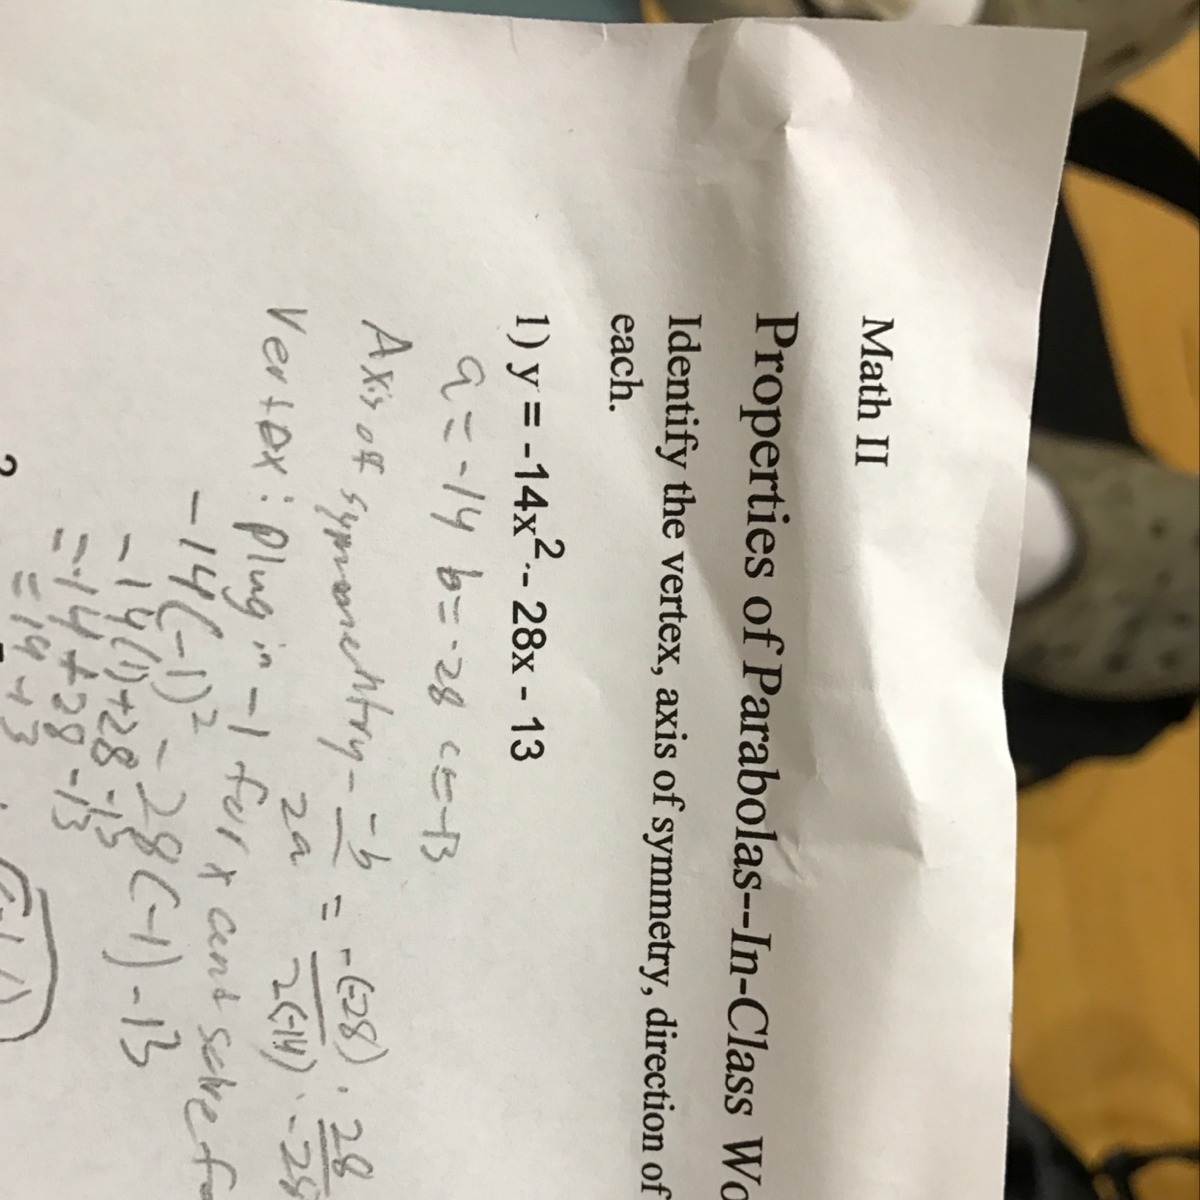 Math II
Properties of Parabolas--In-Class Wo
Identify the vertex, axis of symmetry, direction of
each.
1) y = -14x² - 28x - 13
a = -14 b = -28 c = -13
Axis of symmetry - -b/2a = -(-28)/2(-14) · 28/-28
Vertex: plug in -1 for x and solve f
-14(-1)² - 28(-1) - 13
-14(1)+28-13
= -14+28-13
= 14-13
(-1,1)